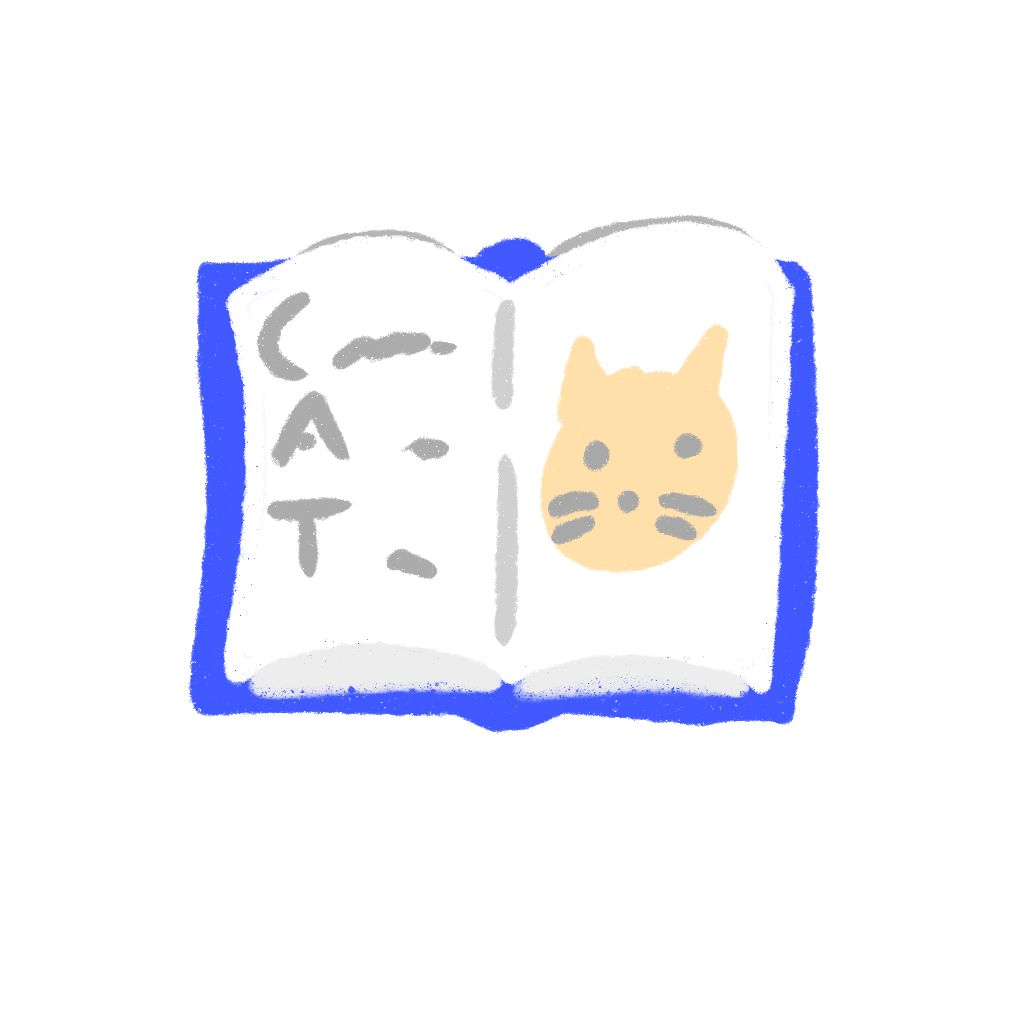 C
A
T